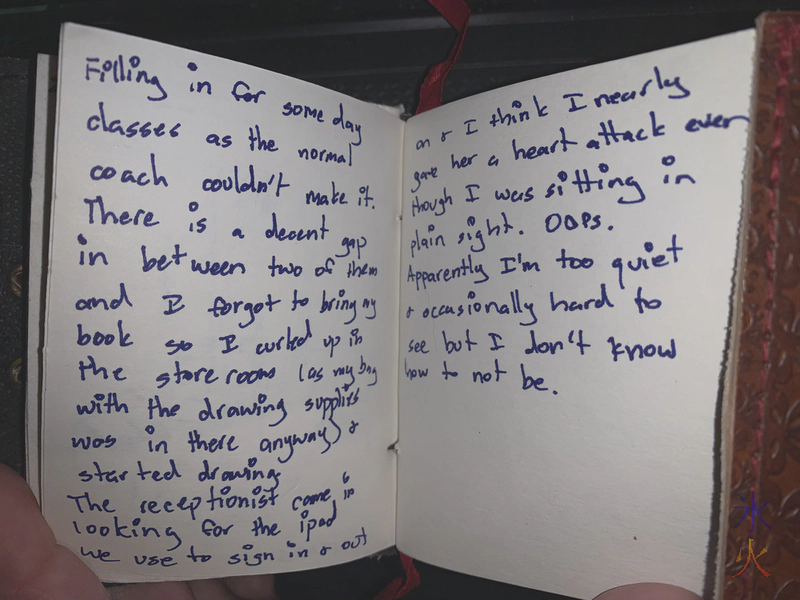 Filling in for some day
classes as the normal
coach couldn't make it.
There is a decent gap
in between two of them
and I forgot to bring my
book so I curled up in
the store room (as my bag
with the drawing supplies
was in there anyway) &
started drawing
The receptionist came in
looking for the ipad
we use to sign in & out
on & I think I nearly
gave her a heart attack even
though I was sitting in
plain sight. OOPS.
Apparently I'm too quiet
& occasionally hard to
see but I don't know
how to not be.
氷
火